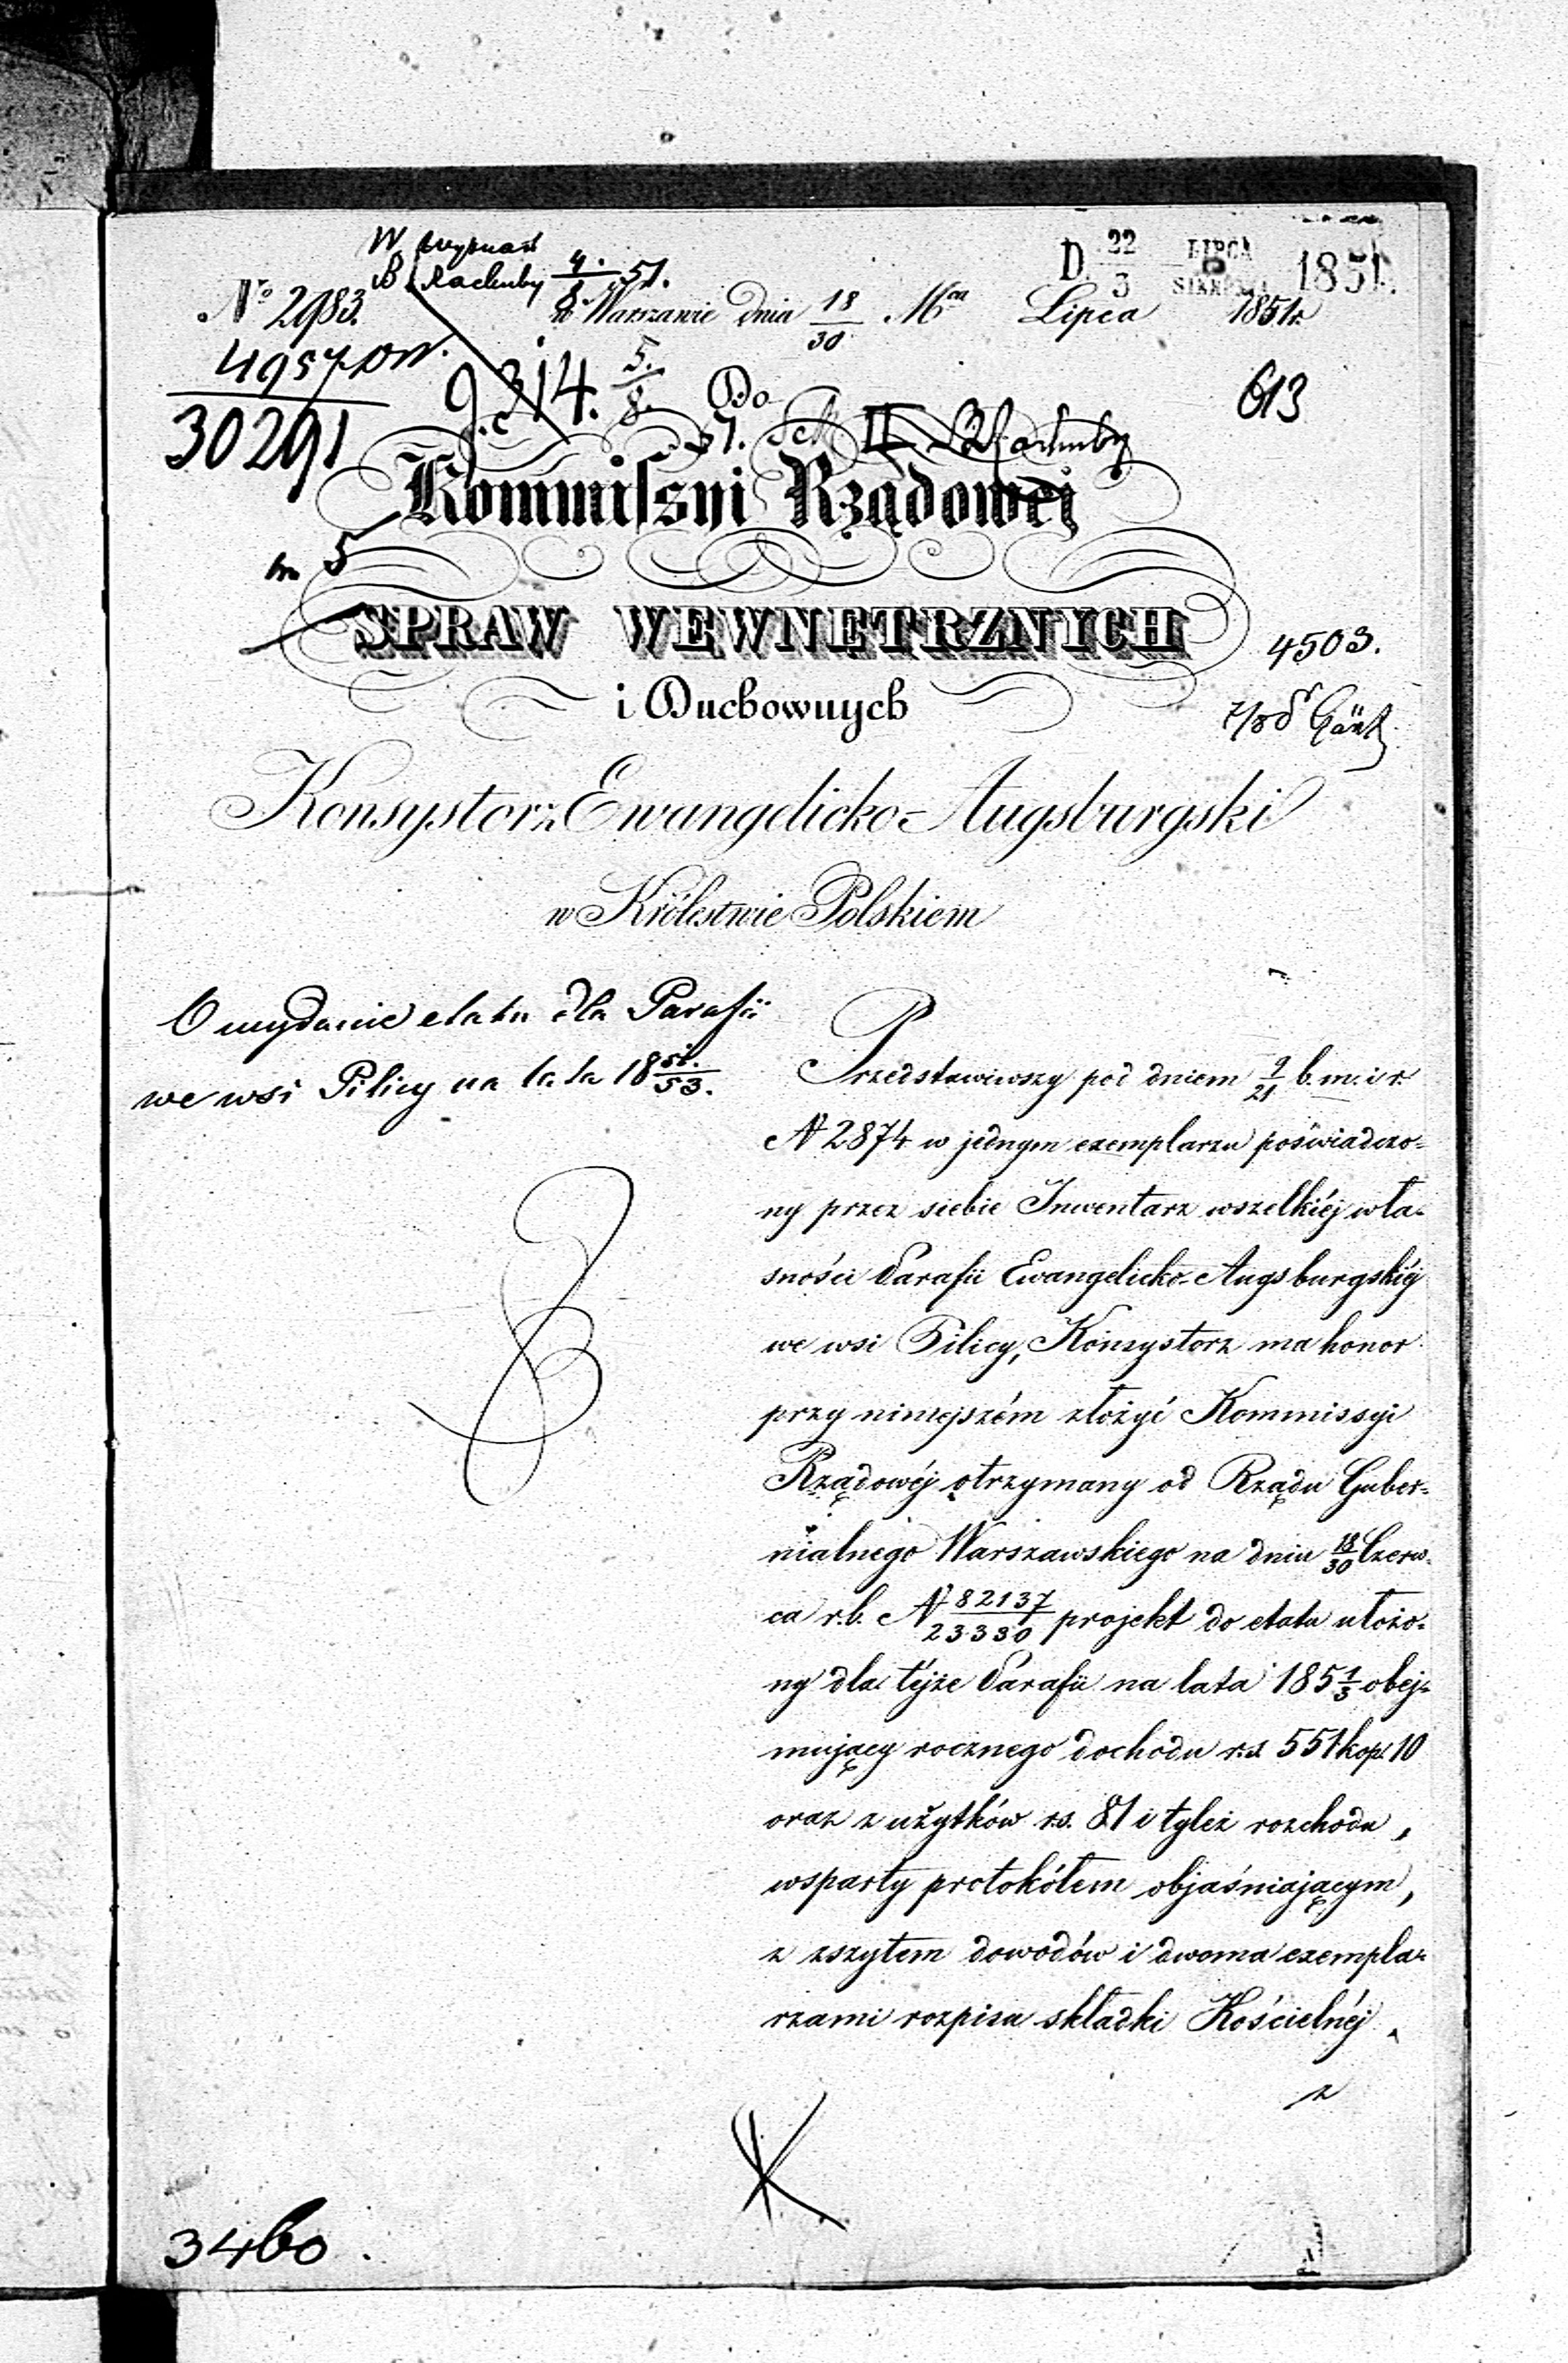 W
B Rachuby 4./8. 51.
D. 22/3 LIPCA/SIERPNIA 1851.
№ 2983. w Warszawie dnia 18/30 Mca Lipca 1851 r.
4957
30291
9314. 5./8. Do
613
Kommissyi Rządowéj
5
SPRAW WEWNĘTRZNYCH
4503.
i Duchownych
7/8
Konsystorz Ewangelicko-Augsburgski
w Królestwie Polskiem
O wydanie etatu dla Parafii
we wsi Pilicy na lata 18 51./53.
Przedstawiwszy pod dniem 9/21 b. m. i r.
N 2874 w jednym exemplarzu poświadczo-
ny przez siebie Inwentarz wszelkiéj wła-
sności Parafii Ewangelicko-Augsburgskiéj
we wsi Pilicy, Konsystorz ma honor
przy niniejszém złożyć Kommissyi
Rządowéj otrzymany od Rządu Guber-
nialnego Warszawskiego na dniu 18/30 Czerw-
ca r.b. N 82137/23330 projekt do etatu ułożo-
ny dla téjże Parafii na lata 185 1/3 obej-
mujący rocznego dochodu r.s. 551 kop. 10
oraz z użytków r.s. 81 i tyleż rozchodu,
wsparty protokółem objaśniającym,
z zszytem dowodów i dwoma exempla-
rzami rozpisu składki Kościelnéj
z
3460.